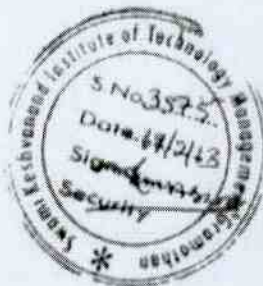 Swami Keshvanand Institute of Technology Management & Gramothan *
S.No 3575
Date. 17/2/13
Sign
Security